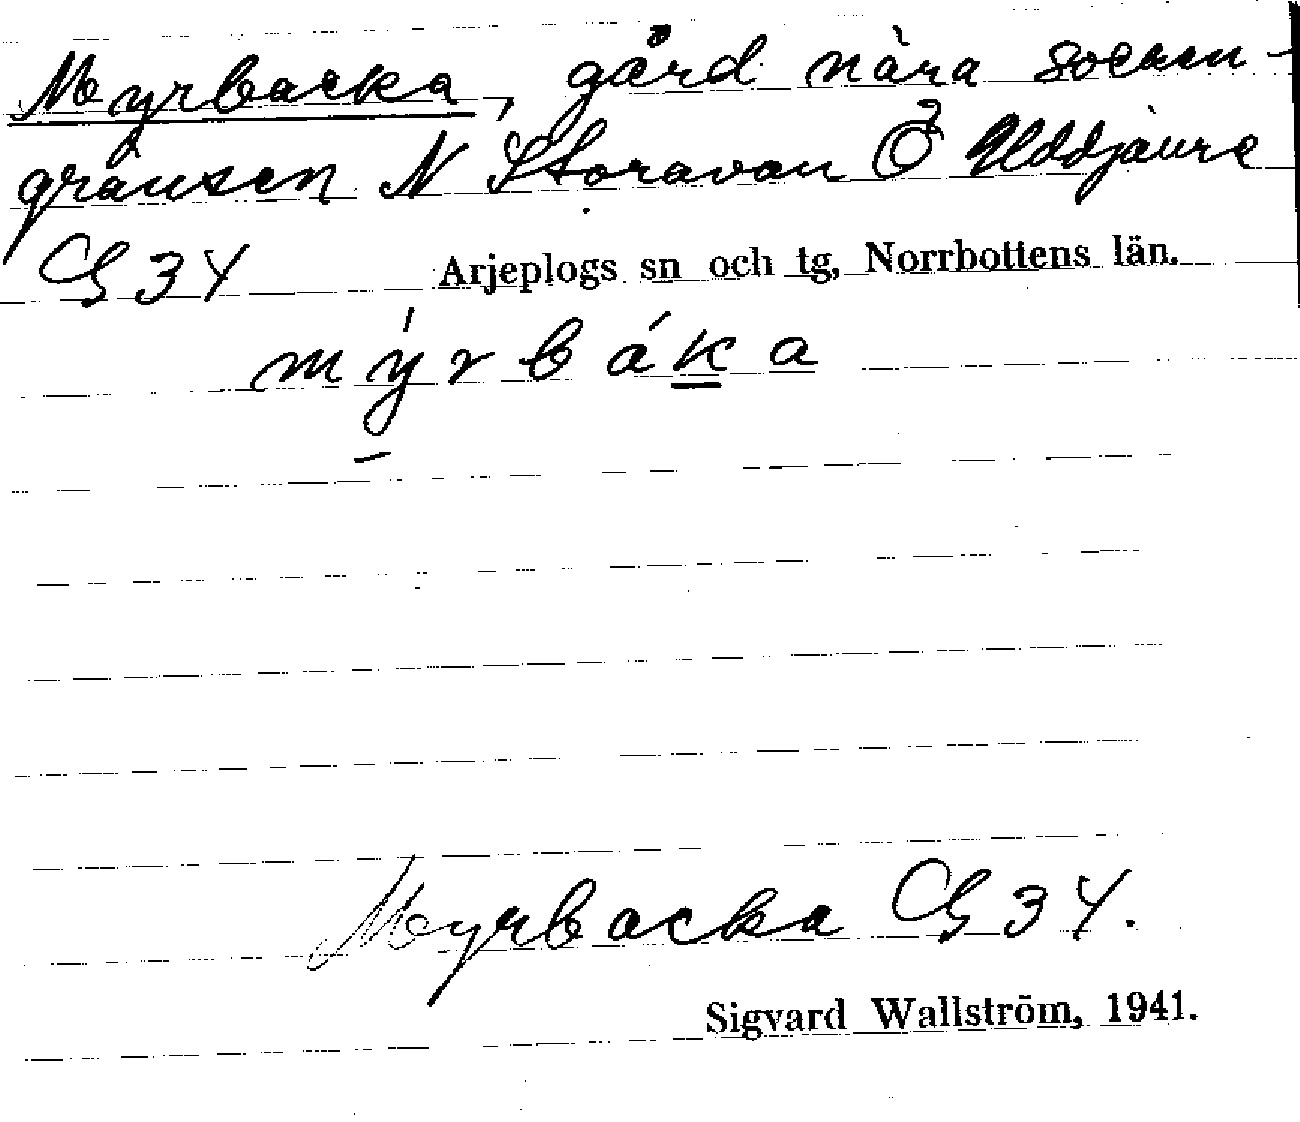 Myrbacka, gård nära socken-
gränsen N Storavan Ö Uddjaure
G 34 Arjeplogs sn och tg, Norrbottens län.
mýrbáka
Myrbacka G 34.
Sigvard Wallström, 1941.